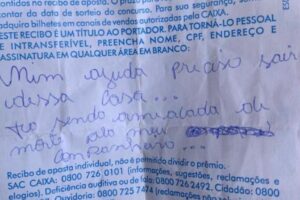 antidos no recibo de aposta. O prazo para
contar da data de sorteio do concurso. Para sua segurança,
adquira bilhetes em canais de vendas autorizadas pela CAIXA.
ESTE RECIBO É UM TÍTULO AO PORTADOR. PARA TORNÁ-LO PESSOAL
E INTRANSFERÍVEL, PREENCHA NOME, CPF, ENDEREÇO E
ASSINATURA EM QUALQUER ÁREA EM BRANCO:
ajuda preciso sair
dessa casa...
to sendo ameaçada de
morte meu
companheiro...
Recibo de aposta individual, não é permitida dividir o prêmio.
SAC CAIXA: 0800 726 0101 (informações, sugestões, reclamações e
elogios). Deficiência auditiva ou de fala: 0800 726 2492. Cidadão: 0800
Ouvidoria: 0800 725 7474 (reclamações não